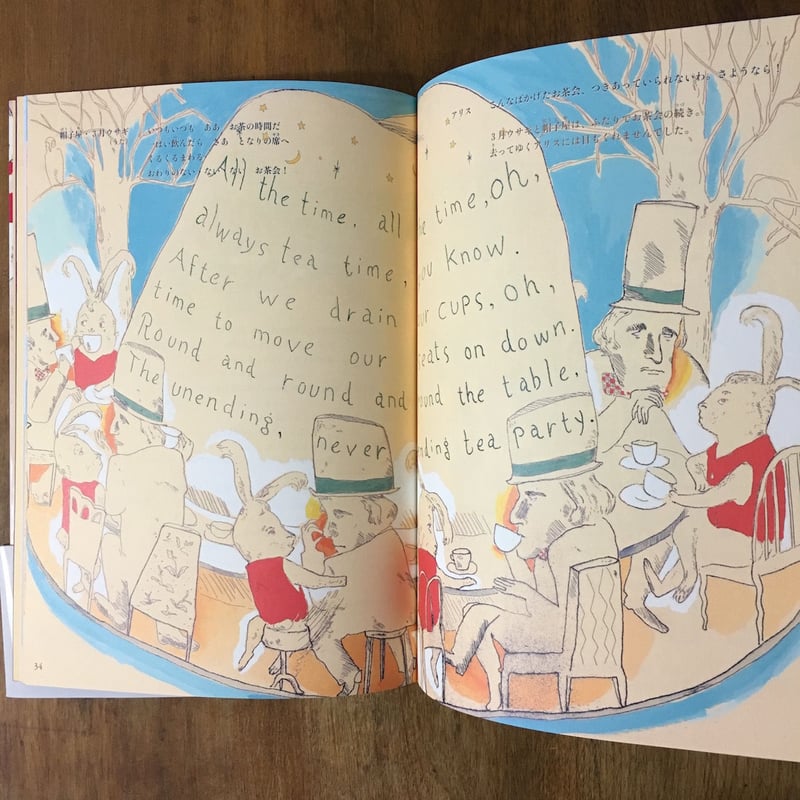 帽子屋・3月ウサギ いつもいつも ああ お茶の時間だ
(うた) 飲んだら さあ となりの席へ
くるくるまわる
おわりのない ない お茶会！
All the time, all
always tea time,
After we drain
time to move our
Round and round and
The unending, never
34
アリス こんなばかげたお茶会、つきあっていられないわ。さようなら！
3月ウサギと帽子屋は、ふたりでお茶会の続き。
去ってゆくアリスには目もくれませんでした。
he time, oh,
ou know.
ur cups, oh,
eats on down.
ound the table,
nding tea party.